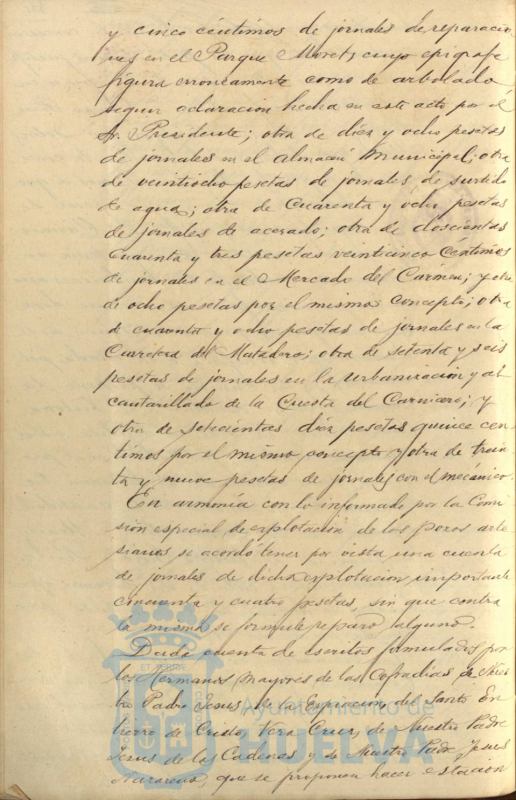 y cinco céntimos de jornales de reparacio
nes en el Parque Moret, cuyo epigrafe
figura erroneamente como de arbolado
segun aclaración hecha en este acto por el
Sr. Presidente; otra de diez y ocho pesetas
de jornales en el almacén Municipal; otra
de veintiocho pesetas de jornales de surtido
de agua; otra de cuarenta y ocho pesetas
de jornales de acerado; otra de doscientas
cuarenta y tres pesetas veinticinco céntimos
de jornales en el Mercado del Carmen; y otra
de ocho pesetas por el mismo concepto; otra
de cuarenta y ocho pesetas de jornales en la
Carretera del Matadero; otra de setenta y seis
pesetas de jornales en la urbanización y al
cantarillado de la Cuesta del Carnicero; y
otra de setecientas diez pesetas quince cen
timos por el mismo concepto y otra de trein
ta y nueve pesetas de jornales con el mecánico.
En armonía con lo informado por la Comi
sión especial de explotación de los pozos arte
sianos se acordó tener por vista una cuenta
de jornales de dicha explotación importante
cincuenta y cuatro pesetas, sin que contra
la misma se formule reparo alguno.
Dada cuenta de escritos formulados por
los Hermanos mayores de las Cofradias de Nues
tro Padre Jesus de la Expiración, del Santo En
tierro de Cristo, Vera Cruz, de Nuestro Padre
Jesus de las Cadenas y de Nuestro Padre Jesus
Nazareno, que se proponen hacer estación
Ayuntamiento de
HUELVA